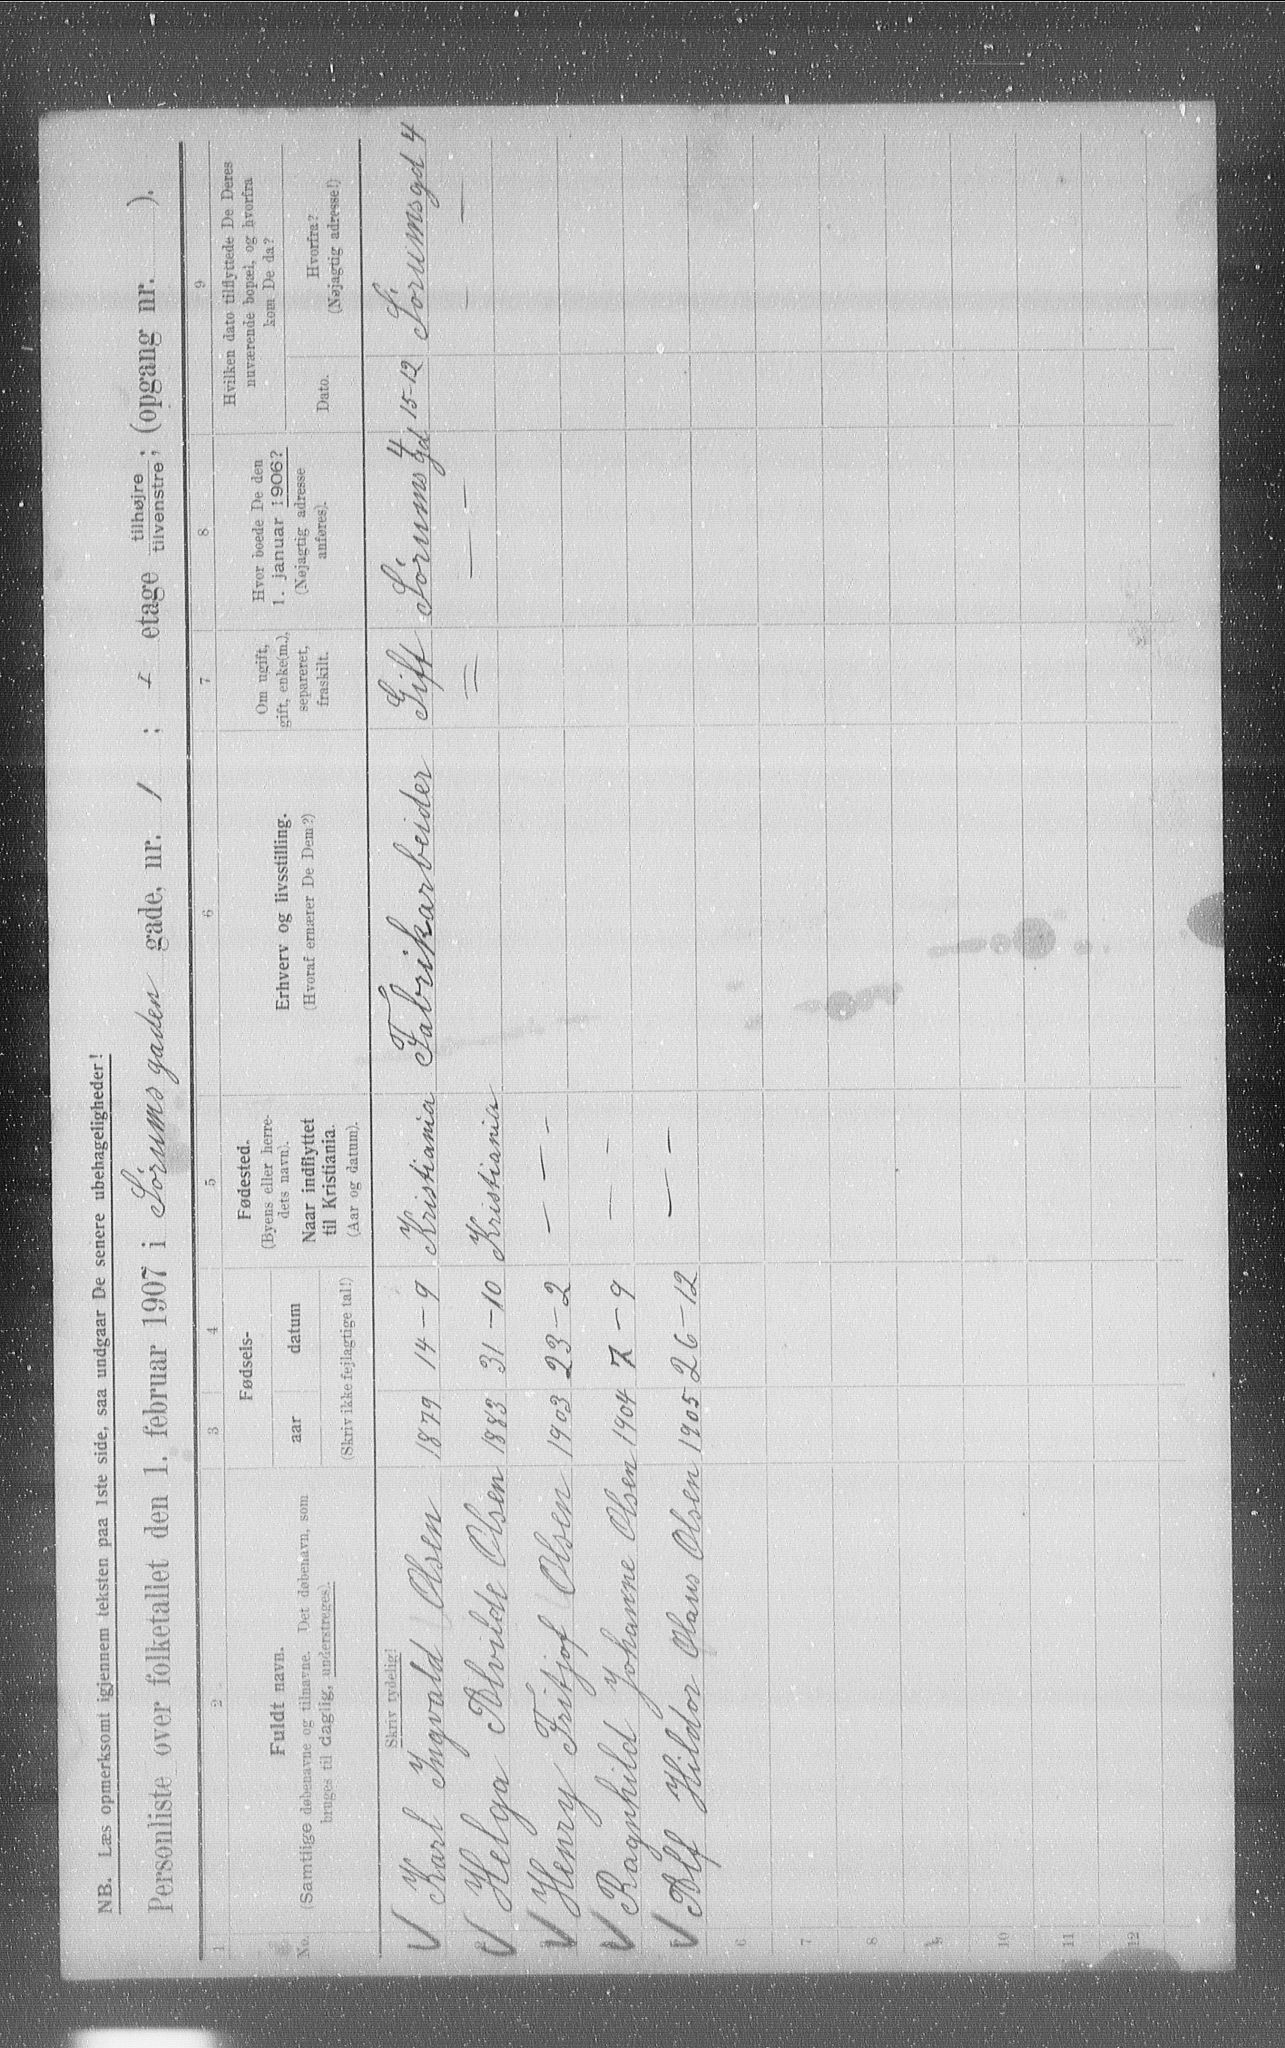 NB. Læs opmerksomt igjennem teksten paa 1ste side, saa undgaar De senere ubehageligheder!
Personliste over folketallet den 1. februar 1907 i Sörumsgaden gade, nr. 1 ; I etage tilhøjre tilvenstre; (opgang nr. ).
1 2 3 4 5 6 7 8 9
No.
Fuldt navn.
(Samtlige døbenavne og tilnavne. Det døbenavn, som
bruges til daglig, understreges).
Fødsels-
aar datum
(Skriv ikke fejlagtige tal!)
Fødested.
(Byens eller herre-
dets navn).
Naar indflyttet
til Kristiania.
(Aar og datum).
Erhverv og livsstilling.
(Hvoraf ernærer De Dem?)
Om ugift,
gift, enke(m.),
separeret,
fraskilt.
Hvor boede De den
1. januar 1906?
(Nøjagtig adresse
anføres).
Hvilken dato tilflyttede De Deres
nuværende bopæl, og hvorfra
kom De da?
Dato.
Hvorfra?
(Nøjagtig adresse!)
Skriv tydelig!
V Karl Ingvald Olsen 1879 14-9 Kristiania Fabrikarbeider Gift Sörumsgd 4 15-12 Sörumsgd 4
V Helga Alvilde Olsen 1883 31-10 Kristiania = — — — —
V Henry Fritjof Olsen 1903 23-2 — — —
V Ragnhild Johanne Olsen 1904 7-9 — —
V Alf Hildor Olaus Olsen 1905 26-12 — —
6
7
8
9
10
11
12